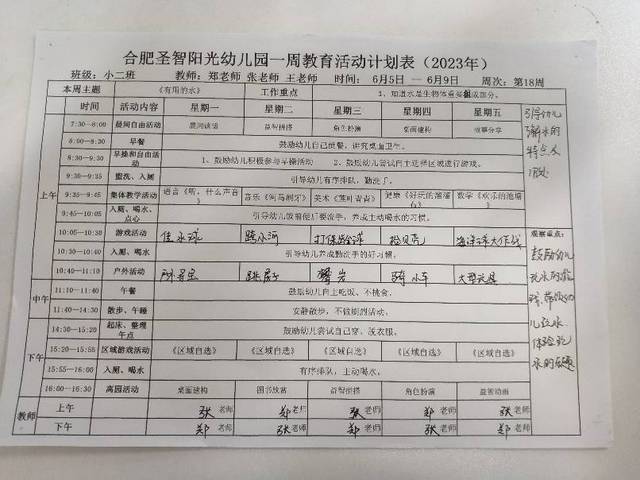 合肥圣智阳光幼儿园一周教育活动计划表（2023年）
班级：小二班 教师：郑老师 张老师 王老师 时间： 6月5日 — 6月9日 周次：第18周
本周主题 《有用的水》 工作重点 1、知道水是生物体重要组成部分。
时间 活动内容 星期一 星期二 星期三 星期四 星期五
上午
7:30—8:00 晨间自由活动 晨间谈话 益智拼搭 角色扮演 桌面建构 故事分享
8:00—8:30 早餐 鼓励幼儿自己进餐，讲究桌面卫生。
8:30—9:30 早操和自由活动 1、鼓励幼儿积极参与早操活动 2、鼓励幼儿尝试自主选择区域进行游戏。
9:30—9:35 盥洗、入厕 引导幼儿有序排队，勤洗手。
9:35—9:45 集体教学活动 语言《听，什么声音》 音乐《河马刷牙》 美术 健康《好玩的 数学《欢乐的池塘》
9:45—10:05 入厕、喝水、点心 引导幼儿饭前便后要洗手，养成主动喝水的习惯。
10:05—10:30 游戏活动 跨小河 打保龄球 捡贝壳 海洋球大作战
10:30—10:40 入厕、喝水 引导幼儿养成勤洗手的好习惯。
10:40—11:10 户外活动 跳房子 攀岩 骑小车 大型玩具
中午
11:10—11:40 午餐 鼓励幼儿自主吃饭、不挑食。
11:40—14:30 散步、午睡 安静散步，不做剧烈活动。
下午
14:30—15:20 起床、整理 午点 鼓励幼儿尝试自己穿、脱衣服。
15:20—15:55 区域游戏活动 《区域自选》 《区域自选》 《区域自选》 《区域自选》 《区域自选》
15:55—16:00 入厕、喝水 有序排队，主动喝水。
16:00—16:30 离园活动 桌面建构 图书欣赏 益智拼搭 角色扮演 益智动画
教师 上午 张老师 郑老师 张老师 郑老师 张老师
下午 郑老师 张老师 郑老师 张老师 郑老师
引导幼儿
了解水的
特点及
用处
观察重点：
鼓励幼儿
玩水的
儿玩水
体验玩
水的乐趣